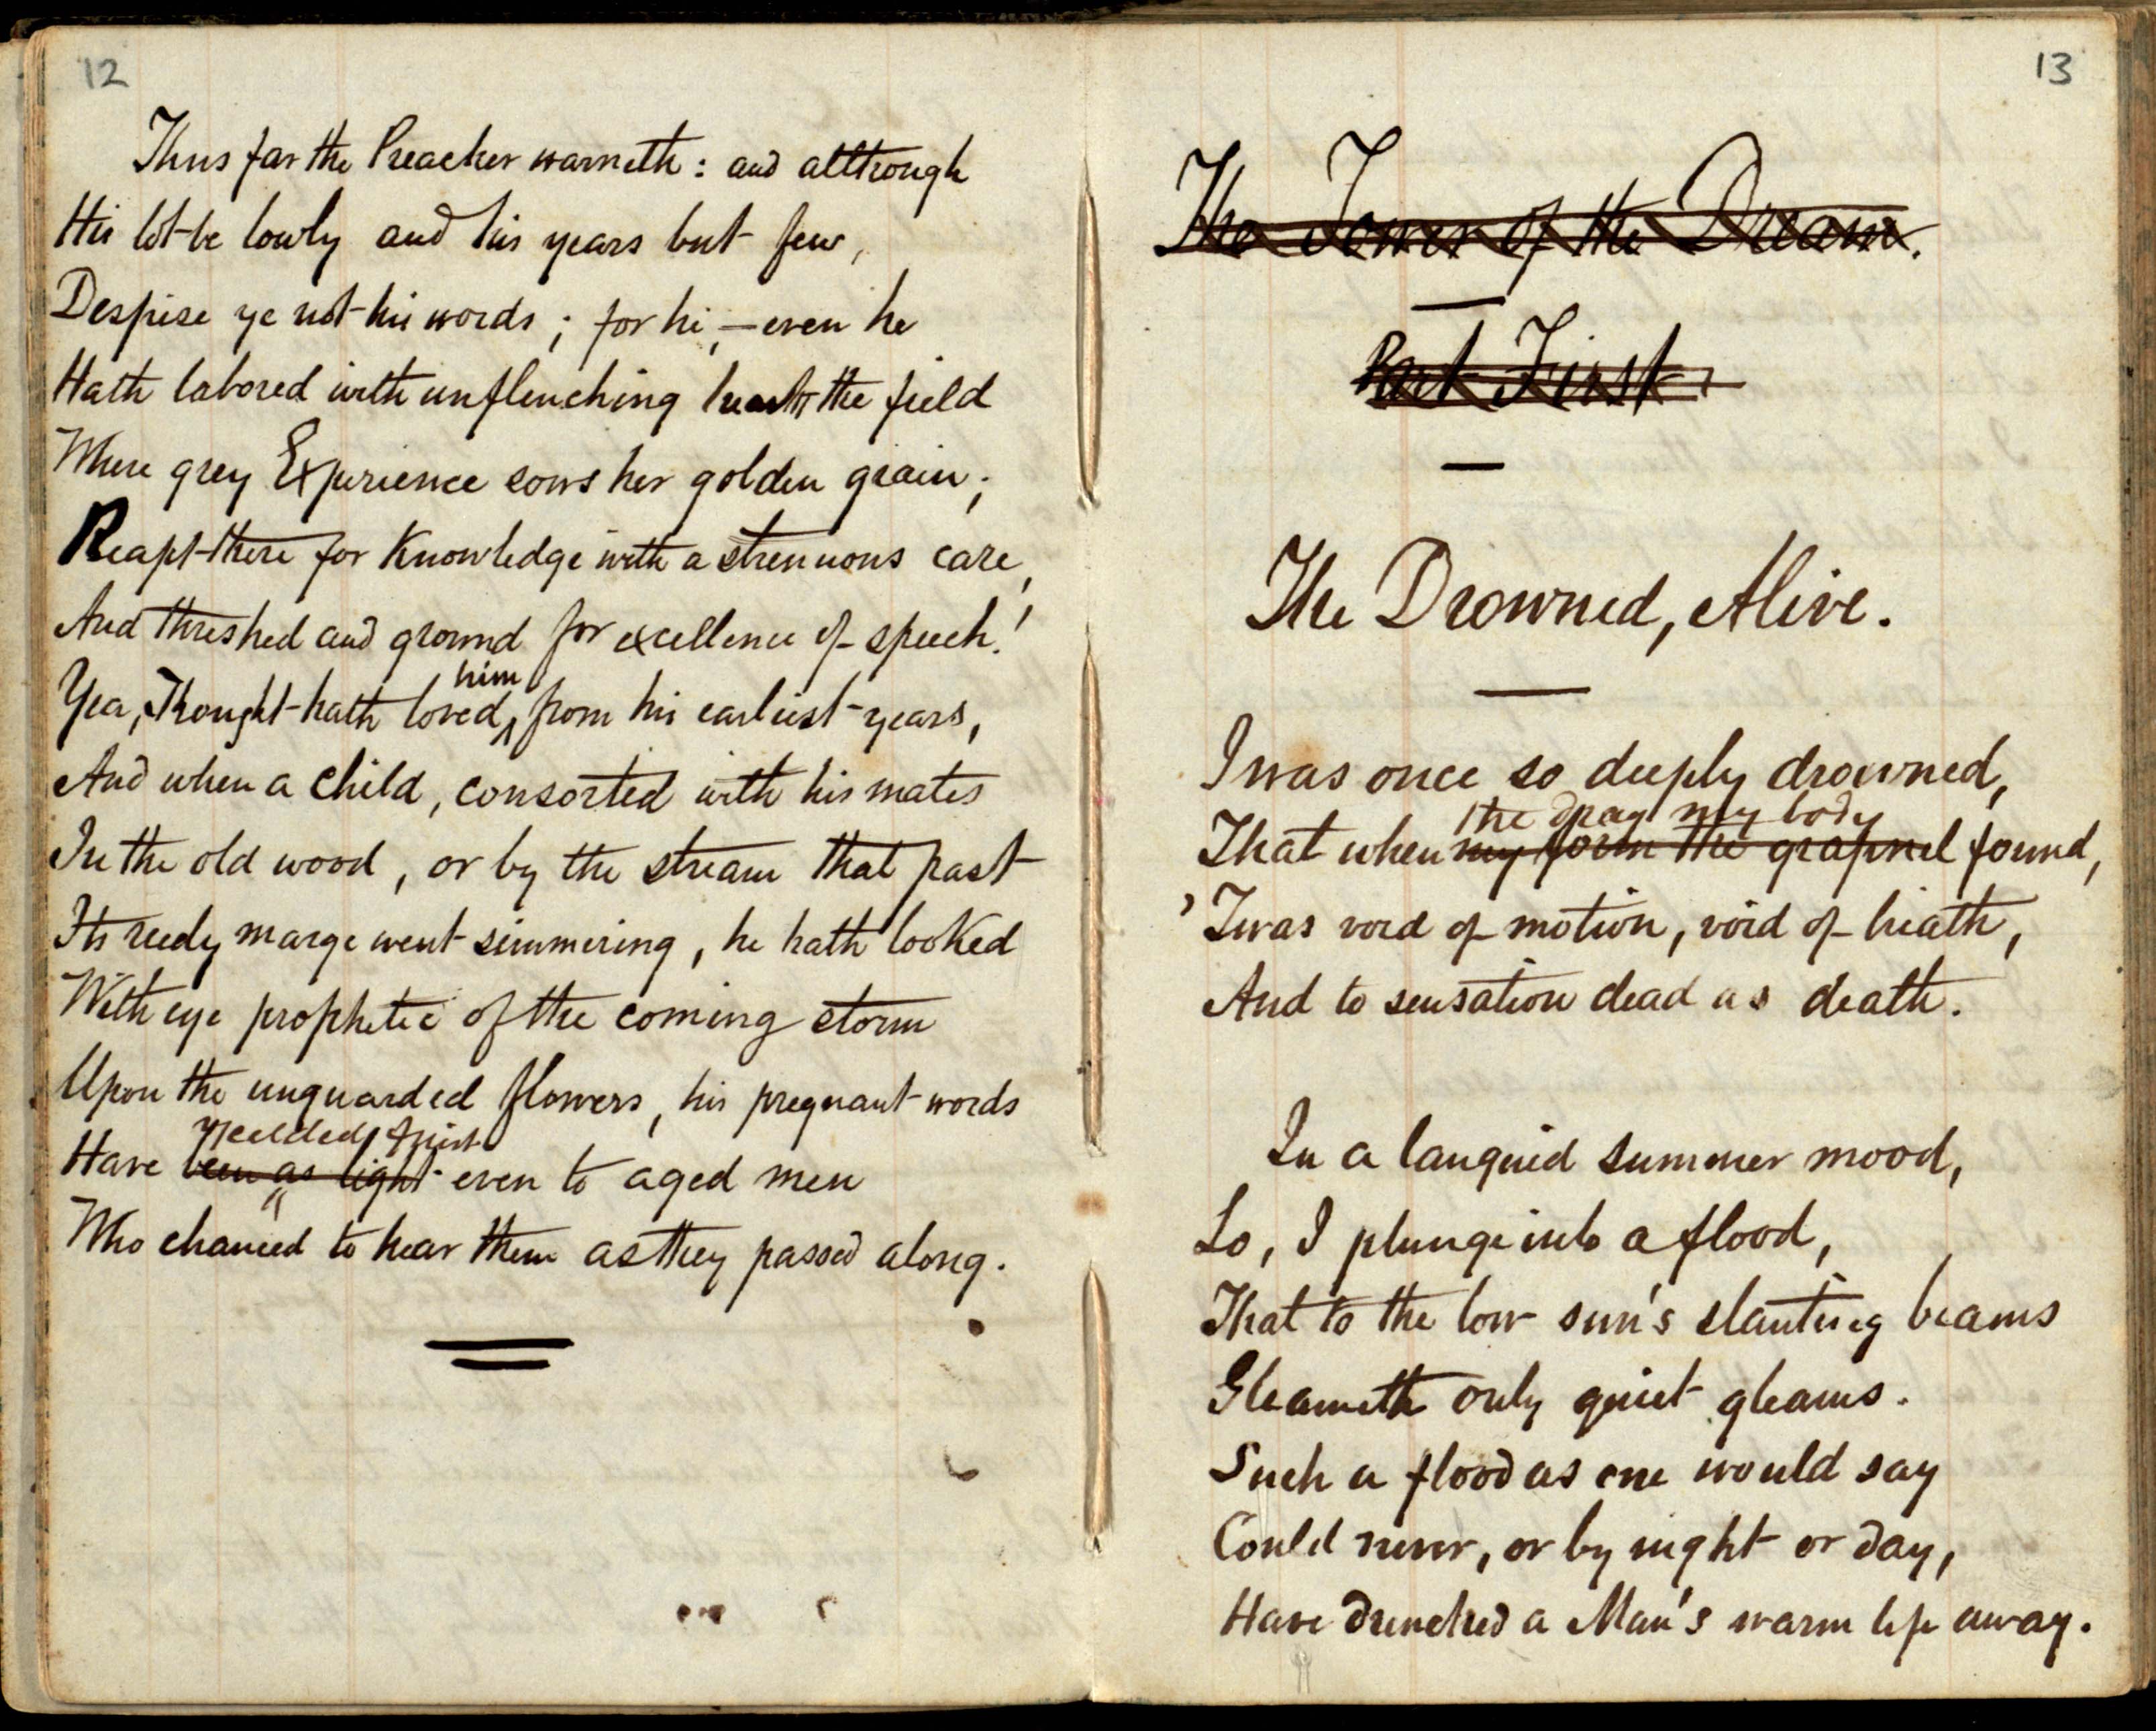 12
Thus far the Preacher warneth: and although
His lot be lowly and his years but few,
Despise ye not his words; for he,—even he
Hath labored with unflenching heart the field
Where grey Experience sows her golden grain;
Reapt there for Knowledge with a strenuous care,
And threshed and ground for excellence of speech!
him
Yea, Thought hath loved, from his earliest years,
And when a child, consorted with his mates
In the old wood, or by the stream that past
Its reedy marge went simmering, he hath looked
With eye prophetic of the coming storm
Upon the unguarded flowers, his pregnant words
yielded
Have been as light even to aged men
Who chanced to hear them as they passed along.
13
The Tower of the Dream.
Part First
The Drowned, Alive.
I was once so deeply drowned,
the drag my body
That when my form the grapnel found,
'Twas void of motion, void of breath,
And to sensation dead as death.
In a languid summer mood,
Lo, I plunge into a flood,
That to the low sun's slanting beams
Gleameth only quiet gleams.
Such a flood as one would say
Could never, or by night or day,
Have drenched a Man's warm life away.